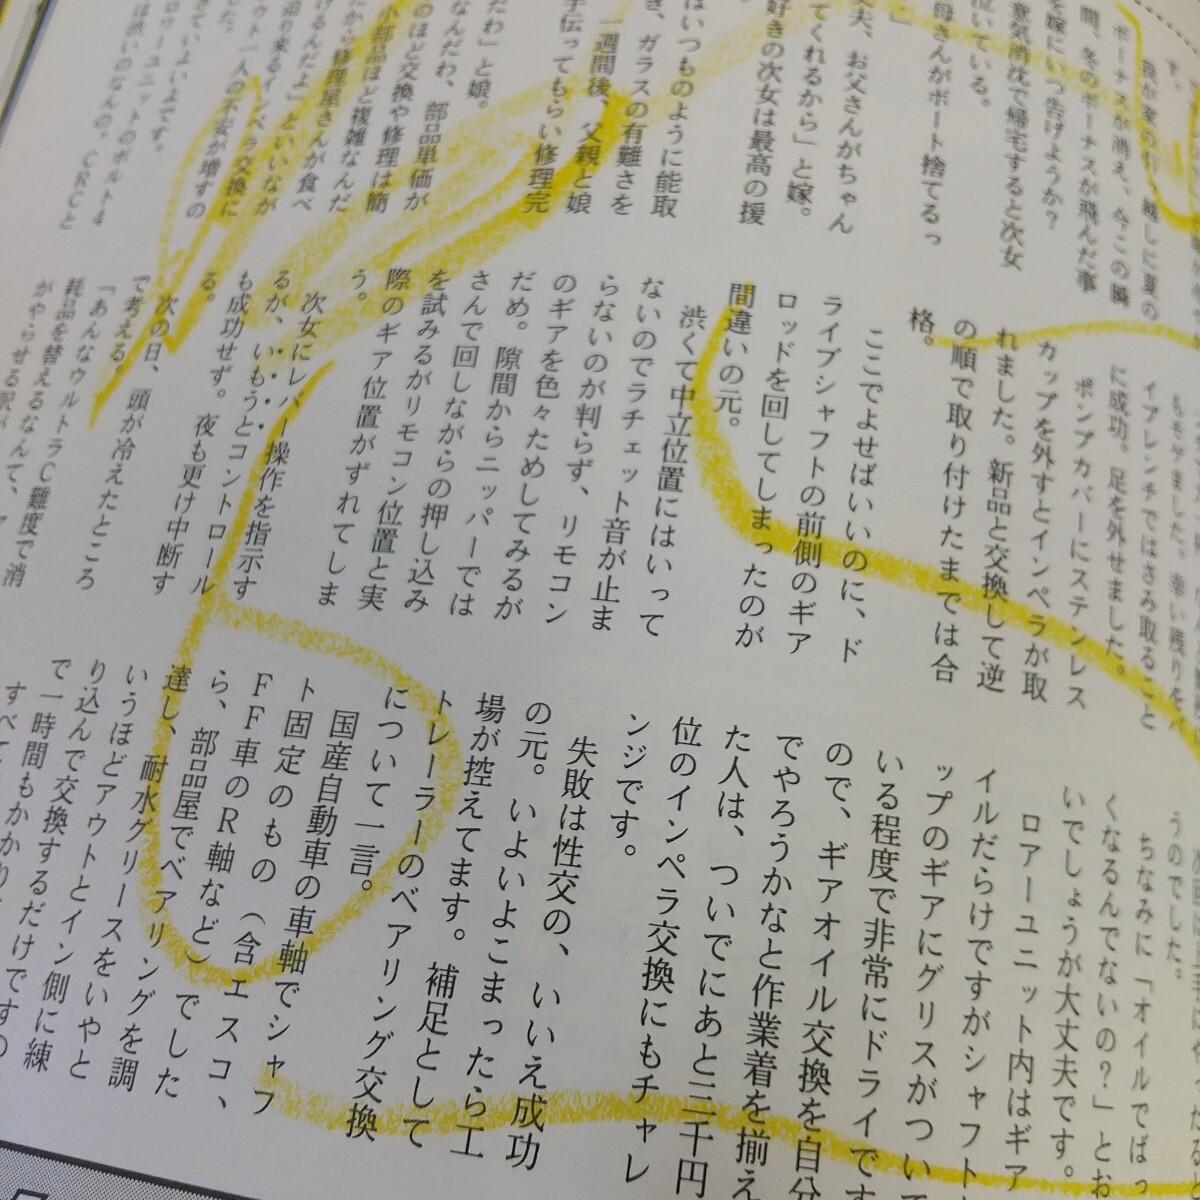 我が家の引っ越しに夏の
ボーナスが消え、今この瞬
間、冬のボーナスが飛んだ事
を嫁にいつ告げようか?
意気消沈で帰宅すると次女
泣いている。
母さんがボート捨てるっ
」
夫、お父さんがちゃん
てくれるから」と嫁。
好きの次女は最高の援
はいつものように能取
き、ガラスの有難さを
一週間後、父親と娘
手伝ってもらい修理完
だわ」と娘。
なんだわ、部品単価が
のほど交換や修理は簡
小部品ほど複雑なんだ
から修理屋さんが食べ
けるんだよ」といいなが
迫り来るインペラ交換に
ウト一人の不安が増すの
した。
きていよいよです。
ロワーユニットのボルト4
は渋いのなんの。CRCと
ました。幸い残りをパ
イプレンチではさみ取ること
に成功。足を外せました。
ポンプカバーにステンレス
カップを外すとインペラが取
れました。新品と交換して逆
の順で取り付けたまでは合
格。
ここでよせばいいのに、ド
ライブシャフトの前側のギア
ロッドを回してしまったのが
間違いの元。
渋くて中立位置にはいって
ないのでラチェット音が止ま
らないのが判らず、リモコン
のギアを色々ためしてみるが
だめ。隙間からニッパーでは
さんで回しながらの押し込み
を試みるがリモコン位置と実
際のギア位置がずれてしま
う。
次女にレバー操作を指示す
るが、いもうとコントロール
も成功せず。夜も更け中断す
る。
次の日、頭が冷えたところ
で考える。
「あんなウルトラC難度で消
耗品を替えるなんて、
がやらせる訳が
うのでした。
ちなみに「オイルでばっ
くなるんでないの?」とお
いでしょうが大丈夫です。
ロアーユニット内はギア
イルだらけですがシャフト
ップのギアにグリスがつい
いる程度で非常にドライです
ので、ギアオイル交換を自分
でやろうかなと作業着を揃え
た人は、ついでにあと二千円
位のインペラ交換にもチャレ
ンジです。
失敗は性交の、いいえ成功
の元。いよいよこまったら工
場が控えてます。補足として
トレーラーのベアリング交換
について一言。
国産自動車の車軸でシャフ
ト固定のもの(含エスコ、
FF車のR軸など)でした
ら、部品屋でベアリングを調
達し、耐水グリースをいやと
いうほどアウトとイン側に練
り込んで交換するだけですの
で一時間もかかり